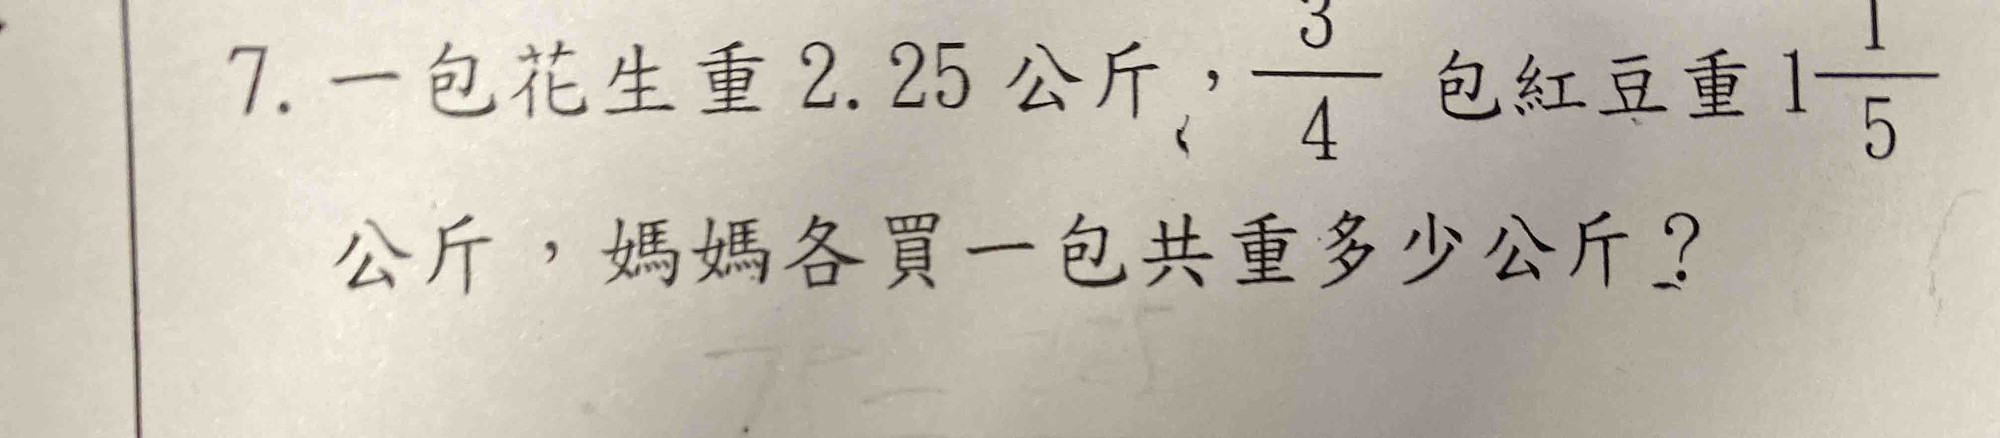 7. 一包花生重 2.25 公斤，3/4 包紅豆重 1 1/5
公斤，媽媽各買一包共重多少公斤？